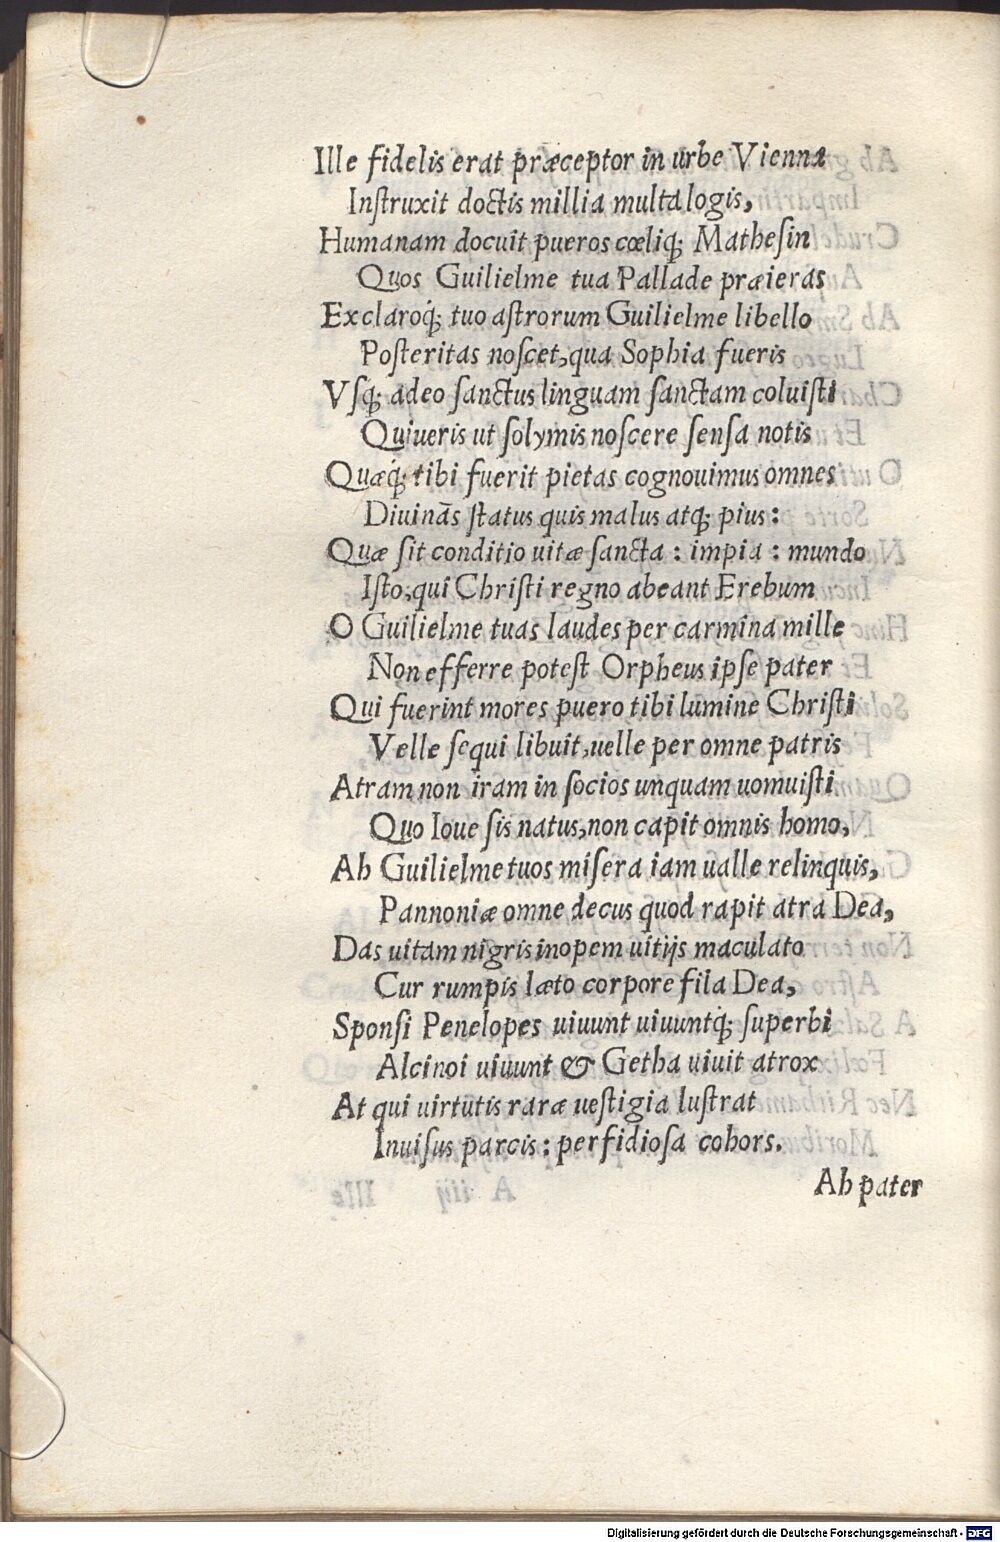 Ille fidelis erat præceptor in urbe Vienna
Inſtruxit doctis millia multa logis,
Humanam docuit pueros cœliq; Matheſin
Quos Guilielme tua Pallade præieras
Exclaroq́; tuo aſtrorum Guilielme libello
Poſteritas noſcet, qua Sophia fueris
Vſq; adeo ſanctus linguam ſanctam coluiſti
Quiueris ut ſolymis noſcere ſenſa notis
Quæq́; tibi fuerit pietas cognouimus omnes
Diuinãs ſtatus quis malus atq; pius:
Quæ ſit conditio uitæ ſancta: impia: mundo
Iſto, qui Chriſti regno abeant Erebum
O Guilielme tuas laudes per carmina mille
Non efferre poteſt Orpheus ipſe pater
Qui fuerint mores puero tibi lumine Chriſti
Velle ſequi libuit, uelle per omne patris
Atram non iram in ſocios unquam uomuiſti
Quo Ioue ſis natus, non capit omnis homo,
Ah Guilielme tuos miſera iam ualle relinquis,
Pannoniæ omne decus quod rapit atra Dea,
Das uitam nigris inopem uitijs maculato
Cur rumpis læto corpore fila Dea,
Sponſi Penelopes uiuunt uiuuntq́; ſuperbi
Alcinoi uiuunt & Getha uiuit atrox
At qui uirtutis raræ ueſtigia luſtrat
Inuiſus parcis: perfidioſa cohors.
Ah pater
Digitalisierung gefördert durch die Deutsche Forschungsgemeinschaft - DFG